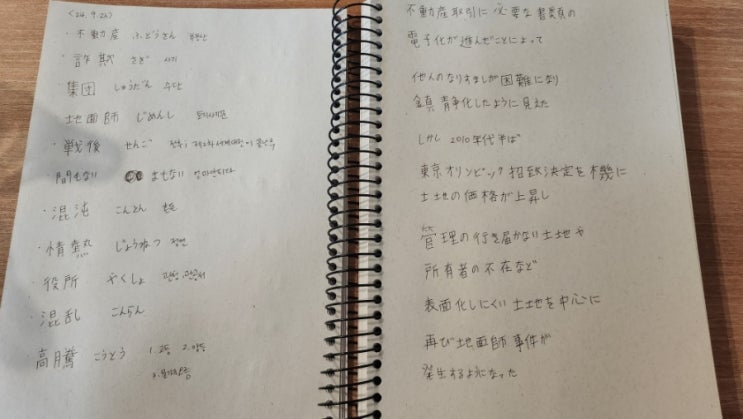 <24.9.26>
・不動産 ふどうさん 부동산
・詐欺 さぎ 사기
・集団 しゅうだん
地面師 じめんし
・戦後 せんご
間もない まもない
・混沌 こんとん 혼돈
・情熱 じょうねつ 정열
・役所 やくしょ
・混乱 こんらん
高騰 こうとう 1.고등 2.앙등
不動産取引に必要な書類の
電子化が進んだことによって
他人のなりすましが困難になり
鎮静化したように見えた
しかし 2010年代半ば
東京オリンピック招致決定を機に
土地の価格が上昇し
管理の行き届かない土地や
所有者の不在など
表面化しにくい土地を中心に
再び地面師事件が
発生するようになった